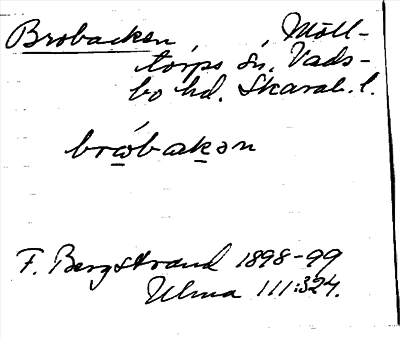 Brobacken, Möll-
torps sn. Vads-
bo hd. Skarab. l.
bro̲bak̲ən
F. Bergstrand 1898-99
Ulma 111:324.